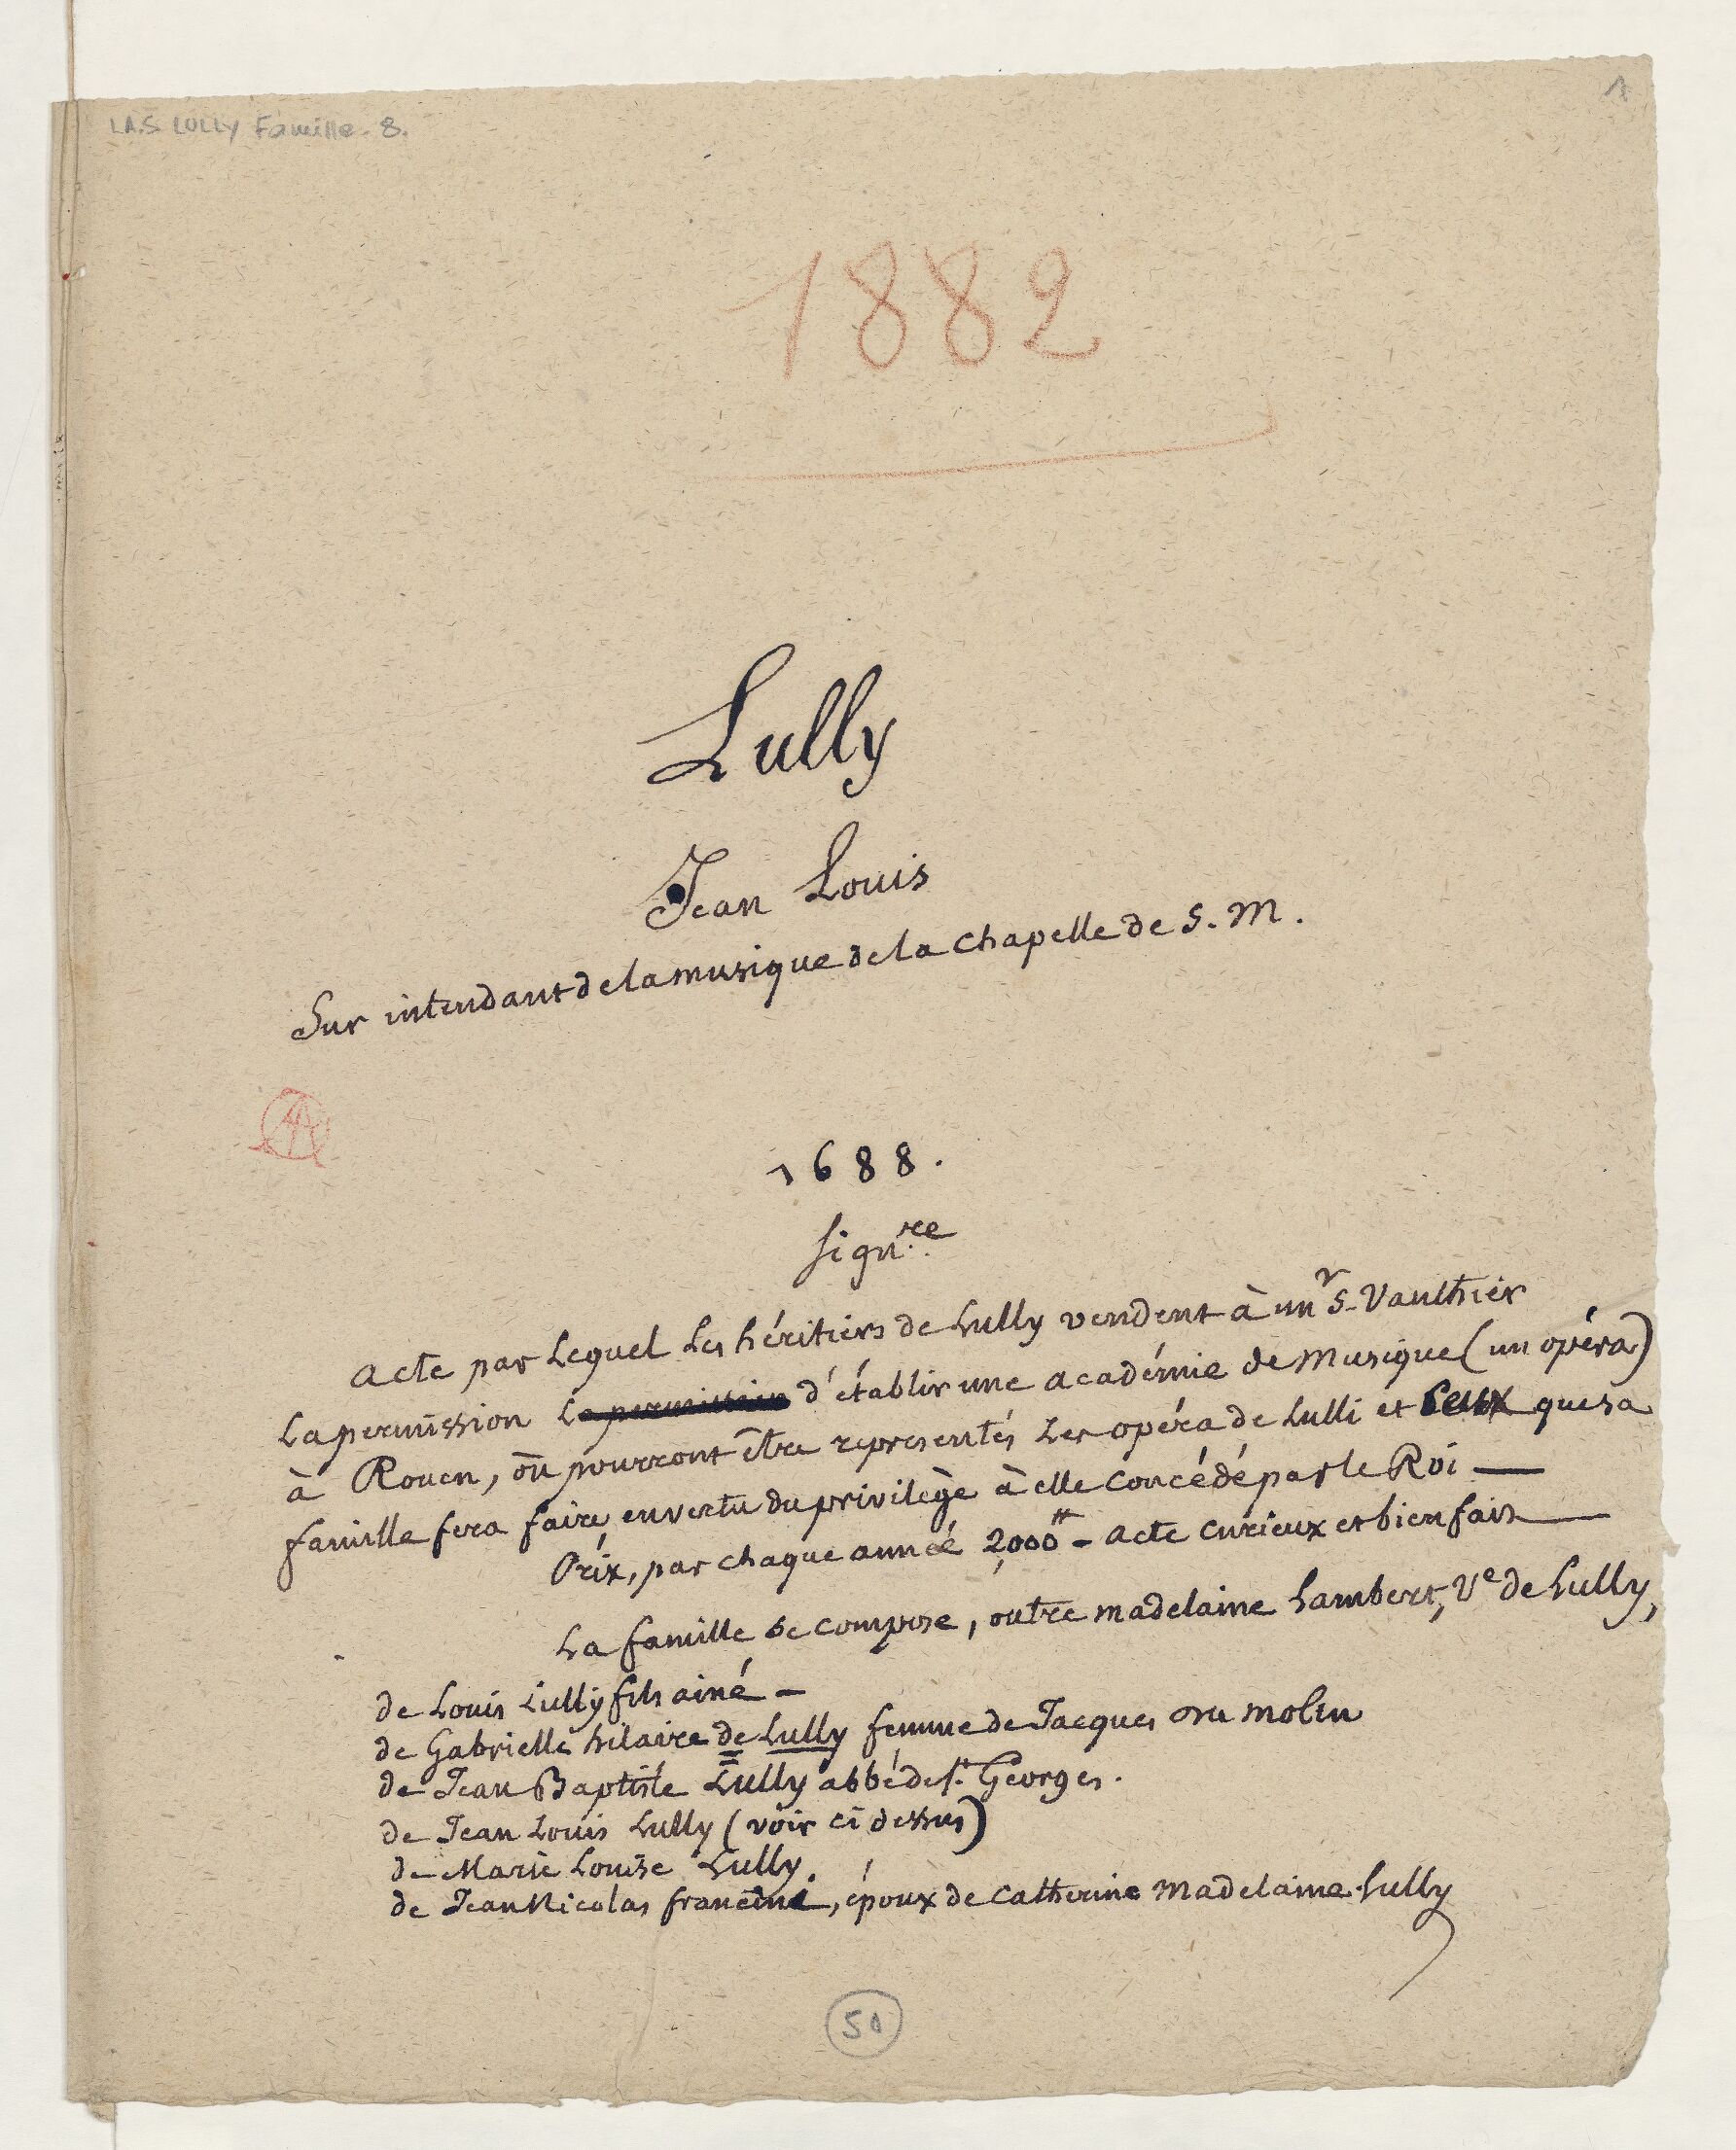 L.A.S. LULLY Famille - 8.
1
1882
Lully
Jean Louis
Sur intendant de la musique de la chapelle de S. M.
1688.
sign.re
acte par Lequel Les héritiers de Lully vendent à un Sr Vaulthier
La permission d'établir une académie de Musique (un opéra)
à Rouen, où pourront être representés Les opéra de Lulli et ceux que sa
famille fera faire en vertu du privilège à elle concédé par le Roi —
Prix, par chaque année 2,000tt - acte curieux et bien fait —
La famille se compose, outre madelaine Lambert, Ve de Lully,
de Louis Lully fils ainé -
de Gabrielle hilaire de Lully femme de Jacques du molin
de Jean Baptiste Lully abbé de st. Georges.
de Jean Louis Lully (voir ci dessus)
de Marie Louise Lully.
de Jean Nicolas francine, époux de catherine Madelaine Lully
50